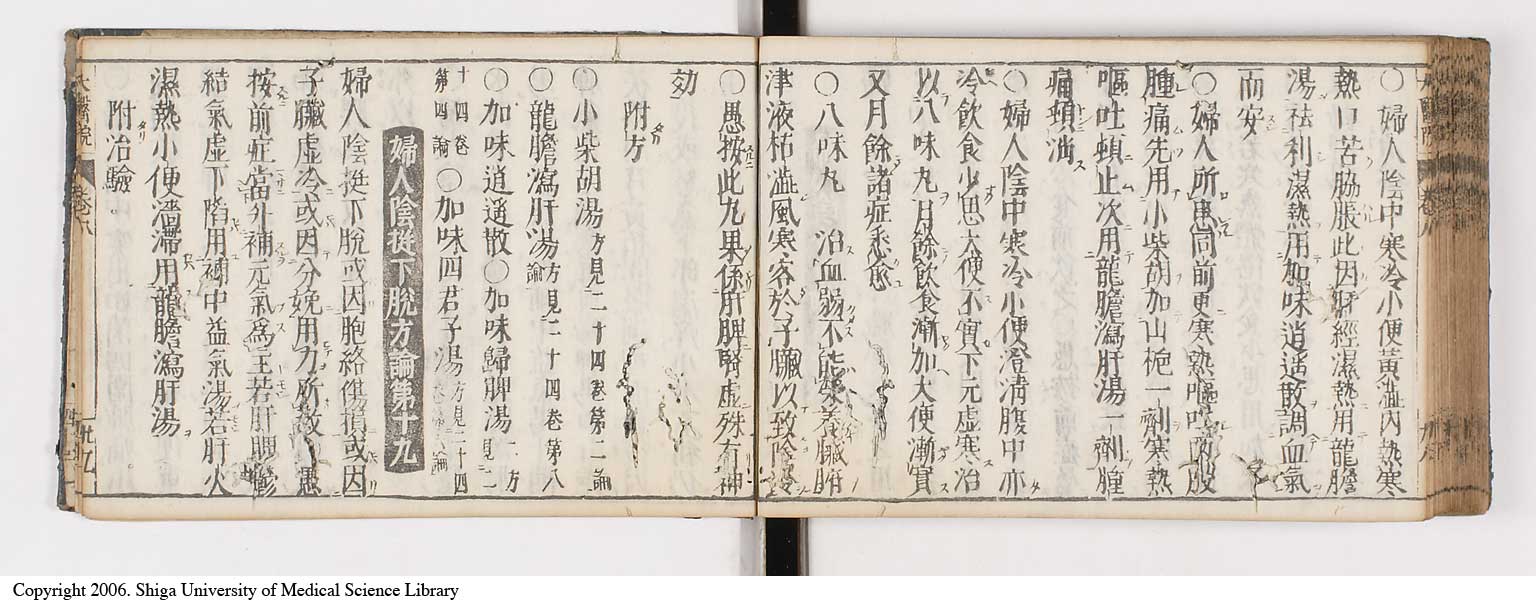 ○婦人陰中寒冷小便黃澁內熱寒
熱口苦脇脹此因肝經濕熱用龍膽
湯祛利濕熱用加味逍遥散調血氣
而安
○婦人所患同前更寒熱嘔吐兩股
腫痛先用小柴胡加山梔一劑寒熱
嘔吐頓止次用龍膽瀉肝湯一劑腫
痛頓消
○婦人陰中寒冷小便澄淸腹中亦
冷飮食少思大便不實下元虛寒治
以八味丸月餘飮食漸加大便漸實
又月餘諸症悉愈
○八味丸 治血弱不能榮養臟腑
津液枯澁風寒客於子臟以致陰冷
○愚按此丸果係肝脾腎虛殊有神
効
附方
○小柴胡湯方見二十四卷第二論
○龍膽瀉肝湯方見二十四卷第八論
○加味逍遥散○加味歸脾湯二方見二
十四卷第四論○加味四君子湯方見二十四
婦人陰挺下脫方論第十九
婦人陰挺下脫或因胞絡傷損或因
子臟虛冷或因分娩用力所致○愚
按前症當升補元氣爲主若肝脾鬱
結氣虛下陷用補中益氣湯若肝火
濕熱小便濇滯用龍膽瀉肝湯
附治驗